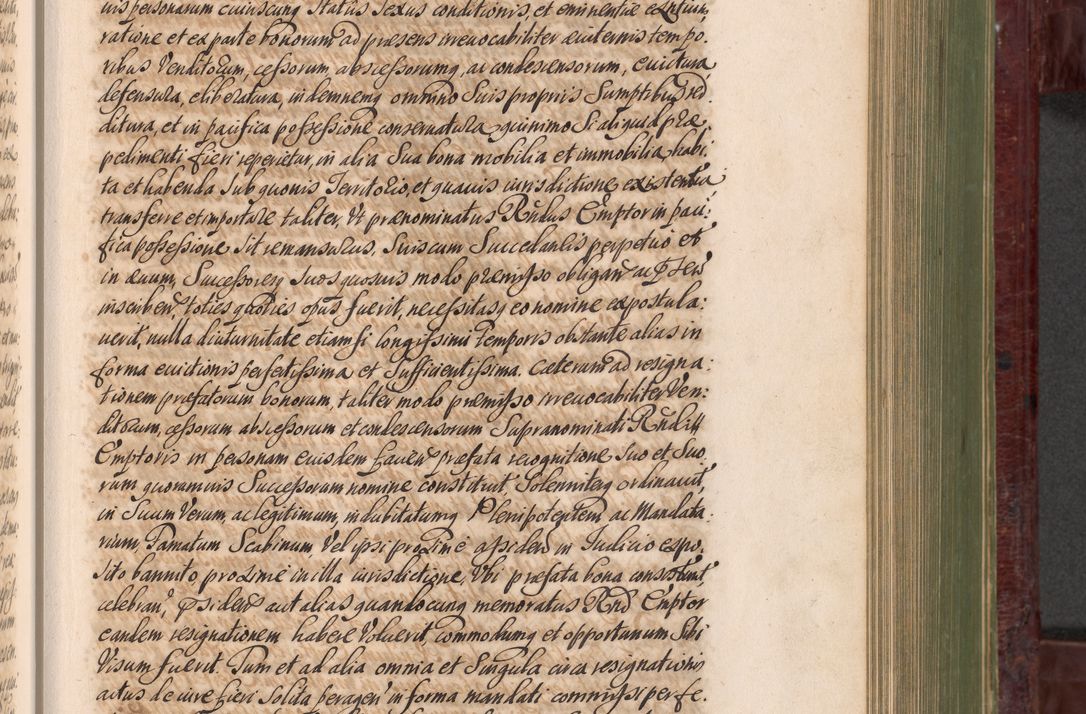 uis personarum cuiuscunq Status Sexus conditionis, et eminentiæ existium,
ratione et ex parte bonorum ad præsens irreuocabiliter æuiternis tempo.
ribus Venditorum, cessorum abscessorumq, ac condescensorum, euictura,
defensura, eliberatura, indemnemq omnino Suis proprijs Sumptibus red
ditura, et in pacifica possessione conseruatura, quinimo Si aliquid præ
pedimenti fieri reperietur, in alia Sua bona mobilia et immobilia, habi
ta et habenda Sub quouis Territorio, et quauis iurisdictione existentia
transferre et importare taliter, Vt prænominatus Rndus Emptor in paci:
fica possessione Sit remansurus, Suis cum Succedaneis perpetuo et
in æuum, Successoresq Suos quosuis modo præmisso obligan ac
inscriben toties quoties opus fuerit, necessitasq eo nomine expostula:
uerit, nulla diuturnitate etiamsi longissimi temporis obstante alias in
forma euictionis perfectissima et Sufficientissima. Cæterum ad resigna:
tionem præfatorum bonorum, taliter modo præmisso irreuocabiliter Ven:
ditorum, cessorum abscessorum et condescensorum Supranominati Rndi
Emptoris in personam eiusdem præfata recognitione Suo et Suo,
rum quorumuis Successorum nomine constituit, Solenniterq ordinauit,
in Suum Verum, ac legitimum, indubitatumq Plenipotentem ac Mandata:
rium, Famatum Scabinum, Vel ipsi proxime assiden in Iudicio expo,
Sito bannito proxime in illa iurisdictione, Vbi præfata bona consistunt
celebran, aut alias quandocunq memoratus Rnd Emptor
eandem resignationem habere Voluerit, commodumq et opportunum Sibi
Visum fuerit. Tum et ad alia omnia et Singula circa resignationis
actus de iure fieri Solita peragen in forma mandati commissi perfe.